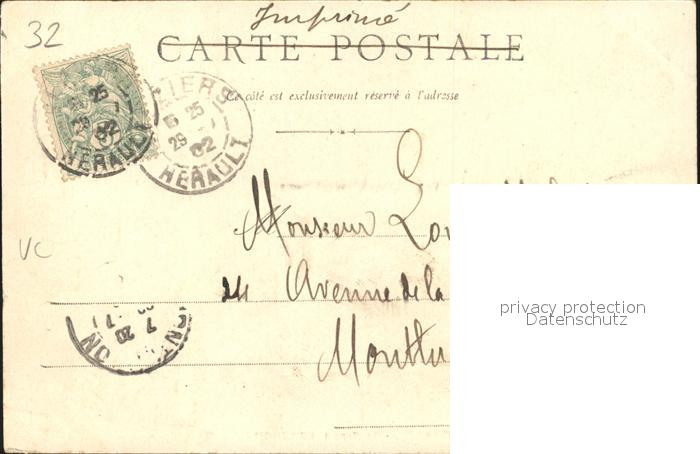 32
Imprimé
CARTE POSTALE
Ce côté est exclusivement réservé à l'adresse
25
29
02
HERAULT
ZIERS
15 25
29
02
HERAULT
Monsieur
24 Avenue de la
VC
privacy protection
Datenschutz
7
20